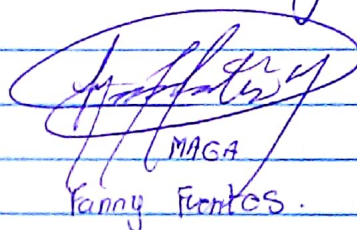 MAGA
Fanny Fuentes.